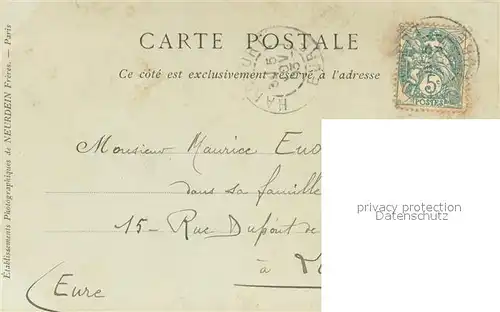 CARTE POSTALE
Ce côté est exclusivement réservé à l'adresse
5c
POSTES
Monsieur Maurice
dans sa famille
15 - Rue Dupont de
à
(Eure
privacy protection
Datenschutz
Établissements Photographiques de NEURDEIN Frères. — Paris